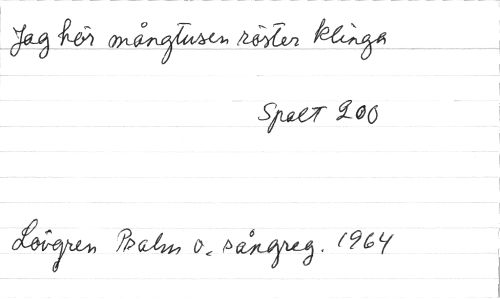 Jag hör mångtusen röster klinga
Spalt 200
Lövgren Psalm o. sångreg. 1964